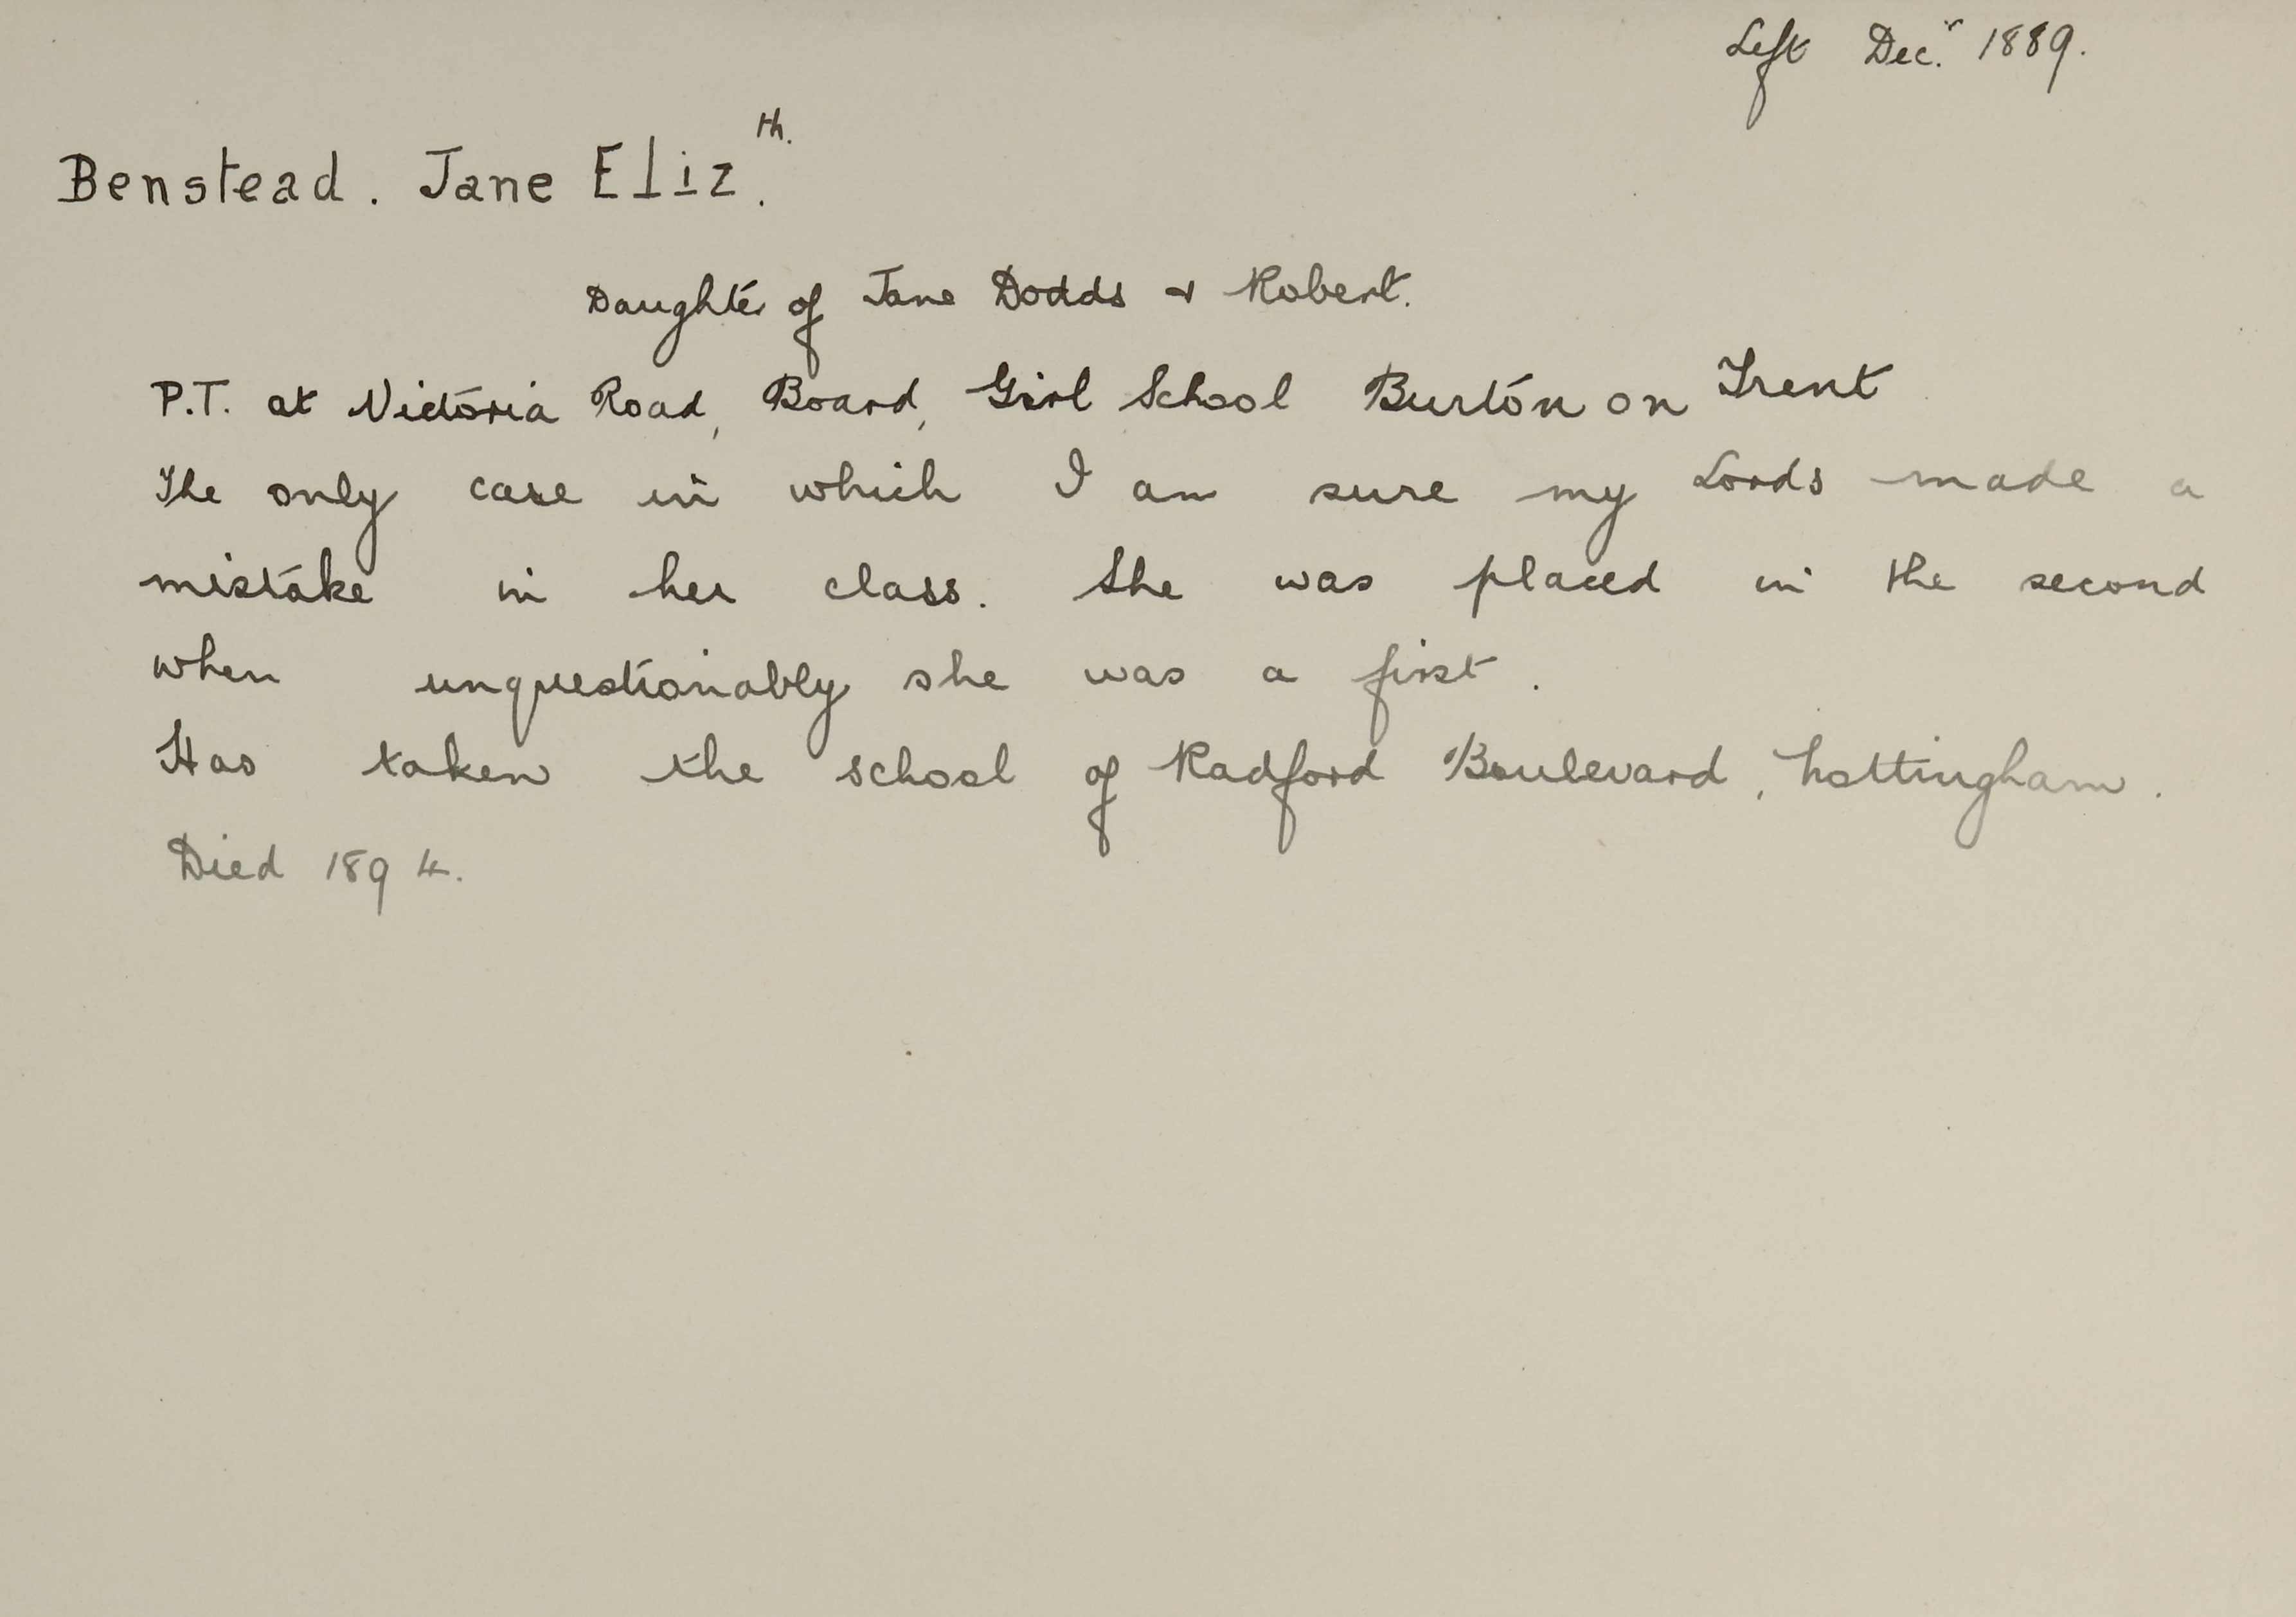 Left Decr. 1889.
Benstead. Jane Elizth.
Daughter of Jane Dodds & Robert.
P.T. at Victoria Road, Board, Girl School Burton on Trent
The only case in which I am sure my Lords made a
mistake in her class. She was placed in the second
when unquestionably she was a first.
Has taken the school of Radford Boulevard, Nottingham.
Died 1894.